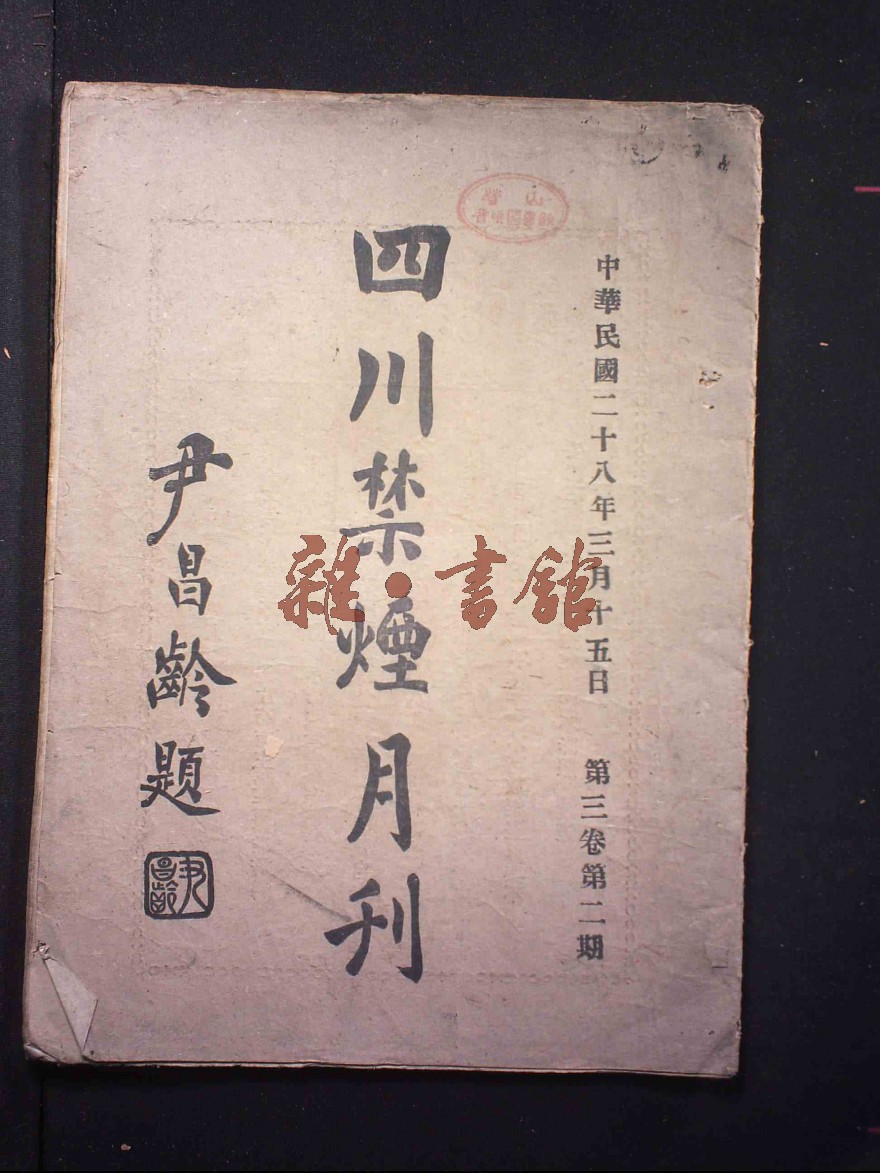 中華民國二十八年三月十五日　第三卷第二期
四川禁煙月刊
尹昌齡題
尹昌齡
雜·書館